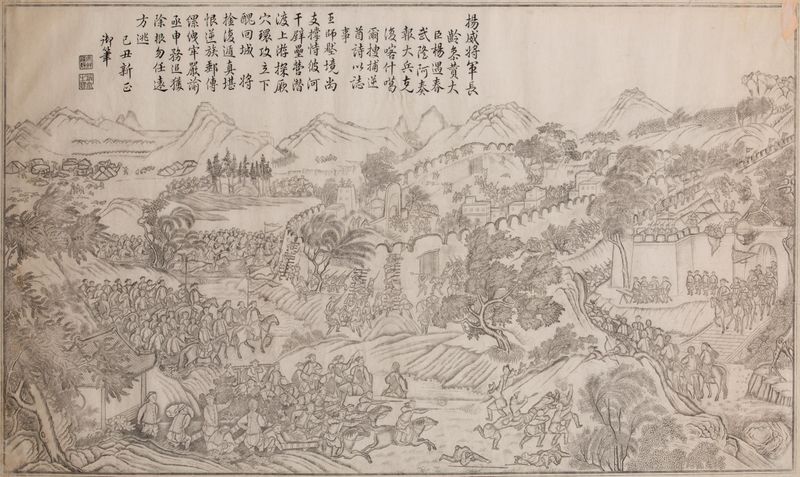 揚威將軍長
齡參贊大
臣楊遇春
武隆阿奏
報大兵克
復喀什噶
爾搜捕逆
酋詩以誌
事
王師壓境尚
支撐恃彼河
干辟壘營潛
渡上游探厥
穴環攻立下
醜回城將
擒復遁真堪
恨逆族郵傳
牢嚴諭
亟申務追獲
除根勿任遠
方逃
己丑新正
御筆